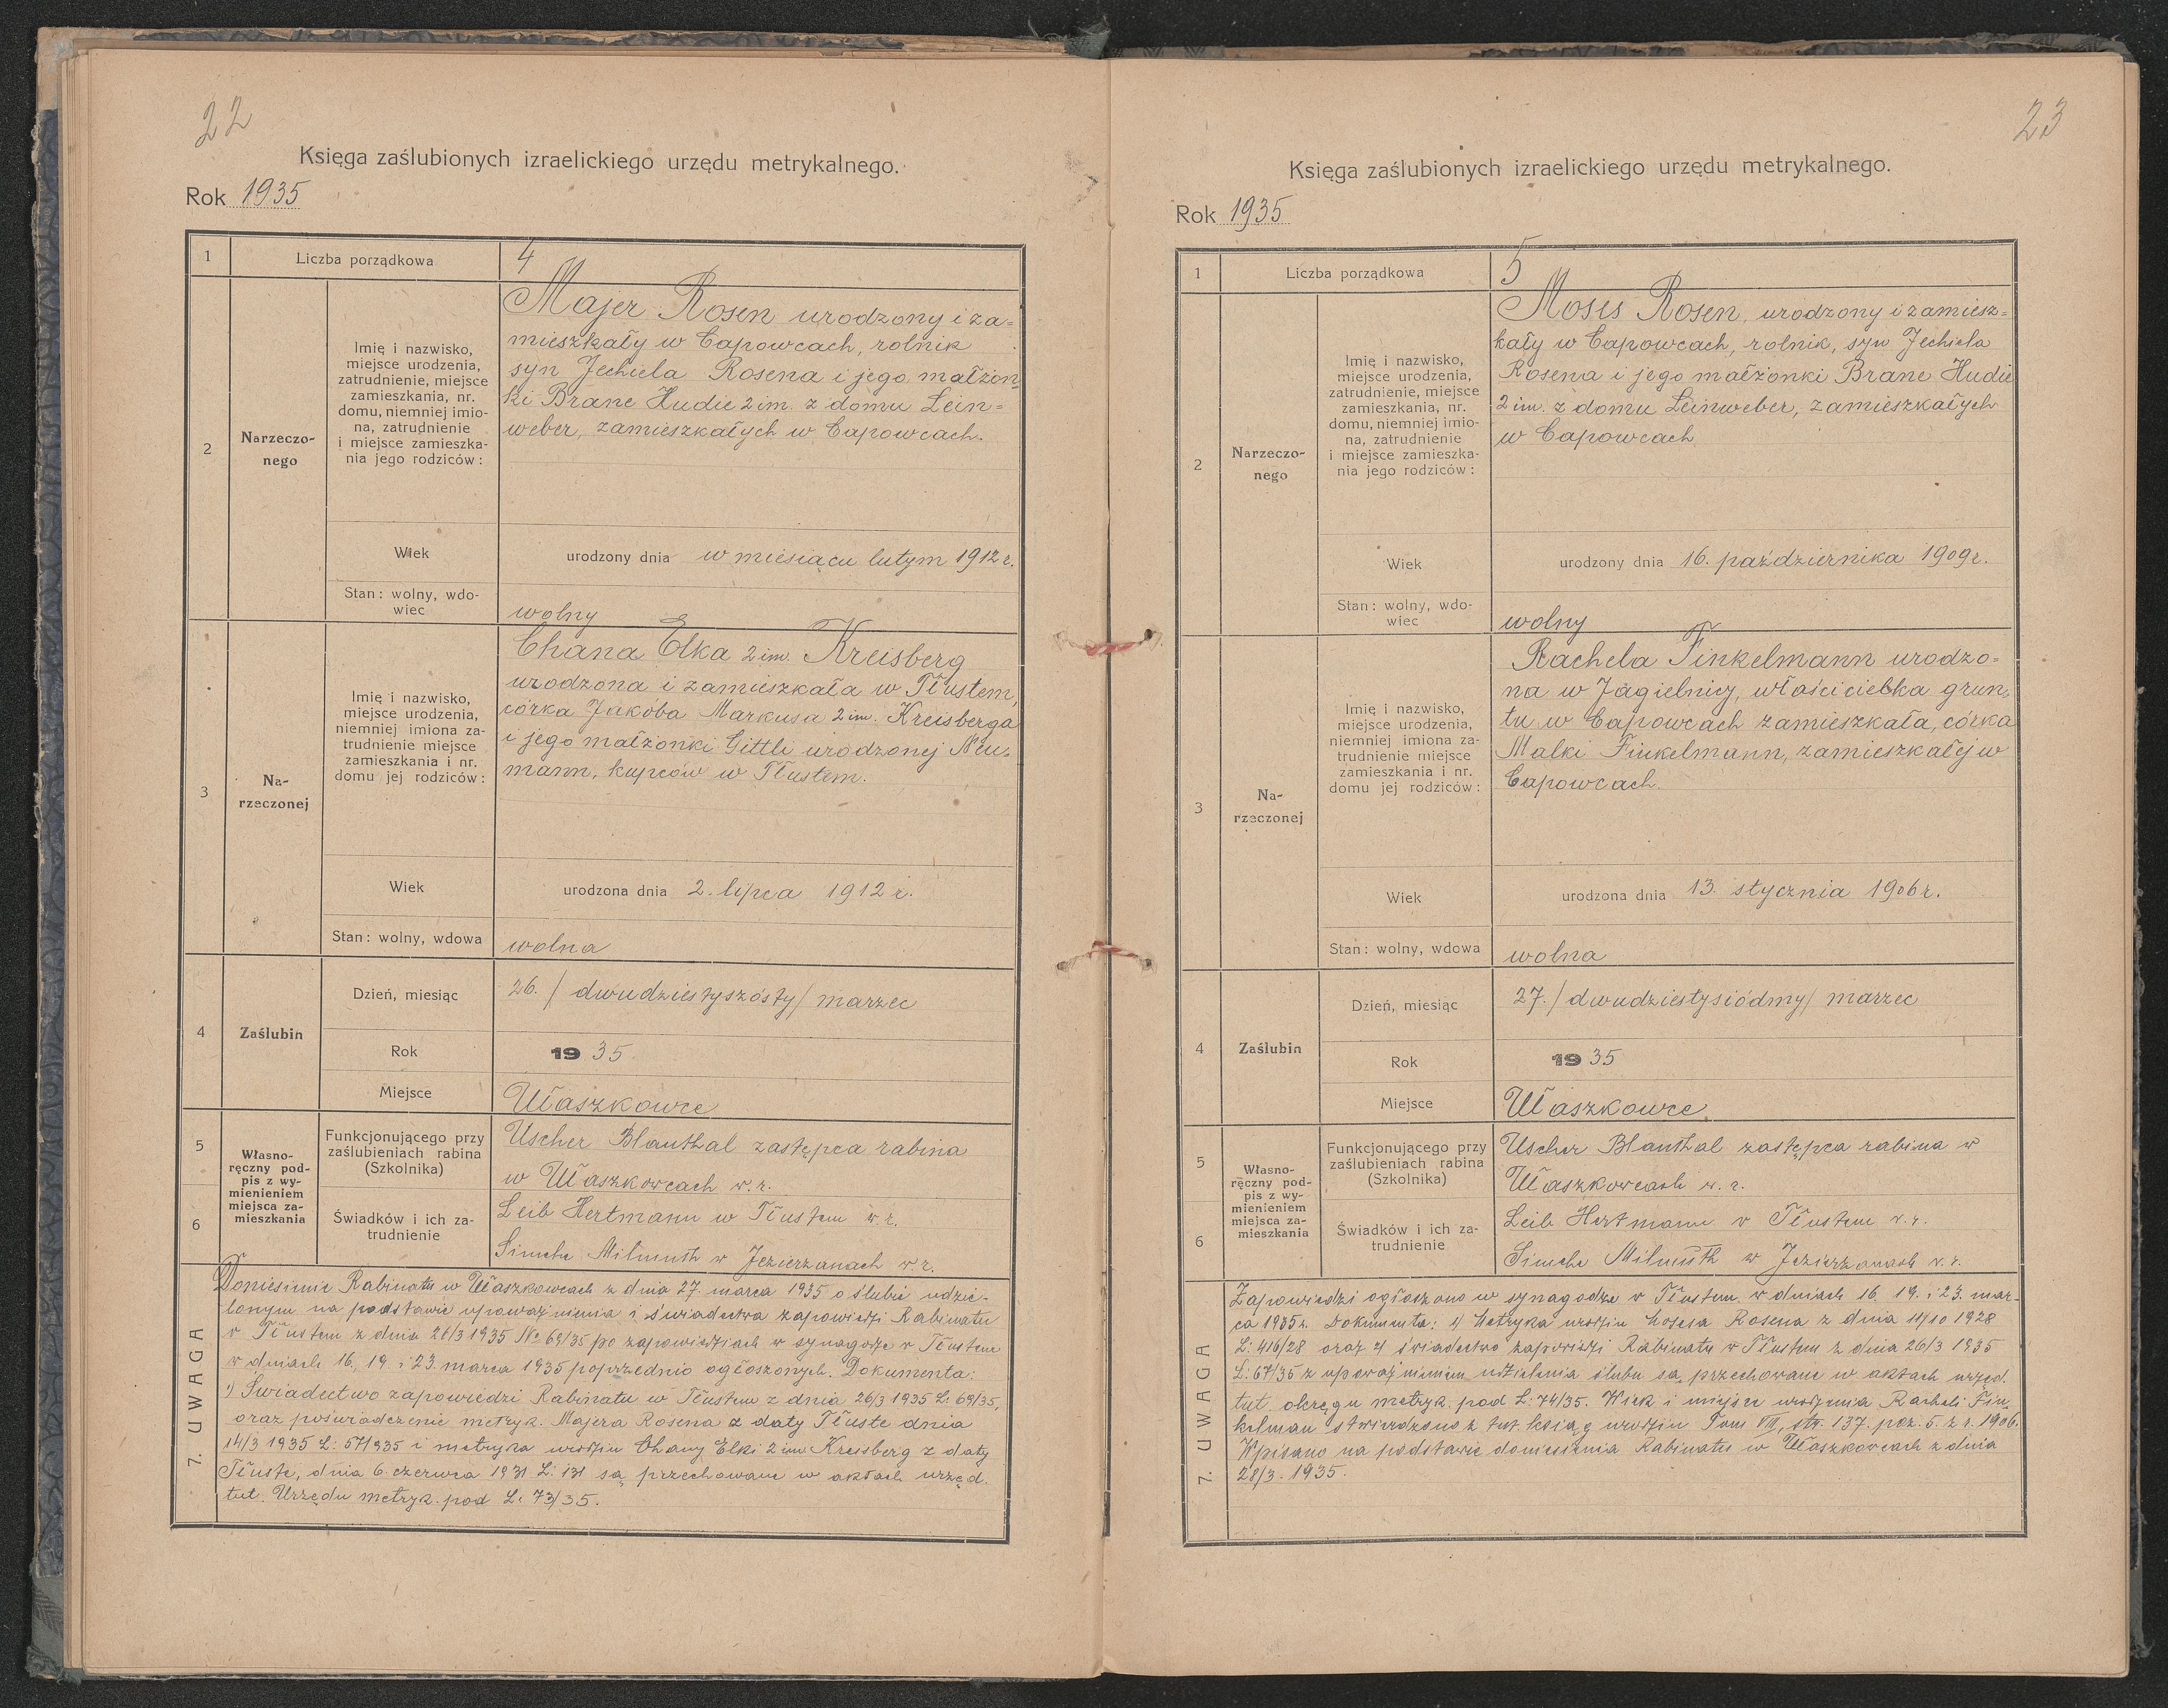 22
Księga zaślubionych izraelickiego urzędu metrykalnego.
Rok 1935
1 Liczba porządkowa 4
2 Narzeczo-
nego
Imię i nazwisko,
miejsce urodzenia,
zatrudnienie, miejsce
zamieszkania, nr.
domu, niemniej imio-
na, zatrudnienie
i miejsce zamieszka-
nia jego rodziców:
Majer Rosen urodzony i za=
mieszkały w Capowcach, rolnik
syn Jechiela Rosena i jego małżon=
ki Brane Hudie 2 im. z domu Lein=
weber, zamieszkałych w Capowcach.
Wiek urodzony dnia w miesiącu lutym 1912 r.
Stan: wolny, wdo-
wiec
wolny
3 Na-
rzeczonej
Imię i nazwisko,
miejsce urodzenia,
niemniej imiona za-
trudnienie miejsce
zamieszkania i nr.
domu jej rodziców:
Chana Elka 2 im. Kreisberg
urodzona i zamieszkała w Tłustem,
córka Jakóba Markusa 2 im. Kreisberga
i jego małżonki Gittli urodzonej Neu=
mann, kupców w Tłustem.
Wiek urodzona dnia 2. lipca 1912 r.
Stan: wolny, wdowa wolna
4 Zaślubin
Dzień, miesiąc 26. / dwudziestyszósty / marzec
Rok 1935
Miejsce Ułaszkowce
Własno-
ręczny pod-
pis z wy-
mienieniem
miejsca za-
mieszkania
5 Funkcjonującego przy
zaślubieniach rabina
(Szkolnika)
Uscher Blauthal zastępca rabina
w Ułaszkowcach w. r.
6 Świadków i ich za-
trudnienie
Leib Hertmann w Tłustem w. r.
Simche Milmuth w Jezierzanach w. r.
7. UWAGA
Doniesienie Rabinatu w Ułaszkowcach z dnia 27. marca 1935 o ślubie udzie-
lonym na podstawie upoważnienia i świadectwa zapowiedzi Rabinatu
w Tłustem z dnia 26/3 1935 No 69/35 po zapowiedziach w synagodze w Tłustem
w dniach 16. 19. i 23. marca 1935 poprzednio ogłoszonych. Dokumenta:
1) Świadectwo zapowiedzi Rabinatu w Tłustem z dnia 26/3 1935 L: 69/35,
oraz poświadczenie metryk. Majera Rosena z daty Tłuste dnia
14/3 1935 L: 57/935 i metryka urodzin Chany Elki 2 im. Kressberg z daty
Tłuste, dnia 6. czerwca 1931 L: 131 są przechowane w aktach urzęd.
tut. Urzędu metryk. pod L: 73/35.
23
Księga zaślubionych izraelickiego urzędu metrykalnego.
Rok 1935
1 Liczba porządkowa 5
2 Narzeczo-
nego
Imię i nazwisko,
miejsce urodzenia,
zatrudnienie, miejsce
zamieszkania, nr.
domu, niemniej imio-
na, zatrudnienie
i miejsce zamieszka-
nia jego rodziców:
Moses Rosen, urodzony i zamiesz=
kały w Capowcach, rolnik, syn Jechiela
Rosena i jego małżonki Brane Hudie
2 im. z domu Leinweber, zamieszkałych
w Capowcach
Wiek urodzony dnia 16. października 1909 r.
Stan: wolny, wdo-
wiec
wolny
3 Na-
rzeczonej
Imię i nazwisko,
miejsce urodzenia,
niemniej imiona za-
trudnienie miejsce
zamieszkania i nr.
domu jej rodziców:
Rachela Finkelmann urodzo=
na w Jagielnicy, właścicielka grun=
tu w Capowcach zamieszkała, córka
Malki Finkelmann, zamieszkałej w
Capowcach.
Wiek urodzona dnia 13. stycznia 1906 r.
Stan: wolny, wdowa wolna
4 Zaślubin
Dzień, miesiąc 27. / dwudziestysiódmy / marzec
Rok 1935
Miejsce Ułaszkowce
Własno-
ręczny pod-
pis z wy-
mienieniem
miejsca za-
mieszkania
5 Funkcjonującego przy
zaślubieniach rabina
(Szkolnika)
Uscher Blauthal zastępca rabina w
Ułaszkowcach w. r.
6 Świadków i ich za-
trudnienie
Leib Hertmann w Tłustem w. r.
Simche Milmuth w Jezierzanach w. r.
7. UWAGA
Zapowiedzi ogłoszono w synagodze w Tłustem w dniach 16. 19. i 23. mar-
ca 1935 r. Dokumenta: 1) Metryka urodzin Mosesa Rosena z dnia 11/10 1928
L: 416/28 oraz 2) świadectwo zapowiedzi Rabinatu w Tłustem z dnia 26/3 1935
L: 67/35 z upoważnieniem udzielenia ślubu są przechowane w aktach urzęd.
tut. okręgu metryk. pod L: 74/35. Wiek i miejsce urodzenia Racheli Fin-
kelman stwierdzono z tut. księgą urodzin Tom VIII, str. 137. poz. 5. z r. 1906.
Wpisano na podstawie doniesienia Rabinatu w Ułaszkowcach z dnia
28/3. 1935.